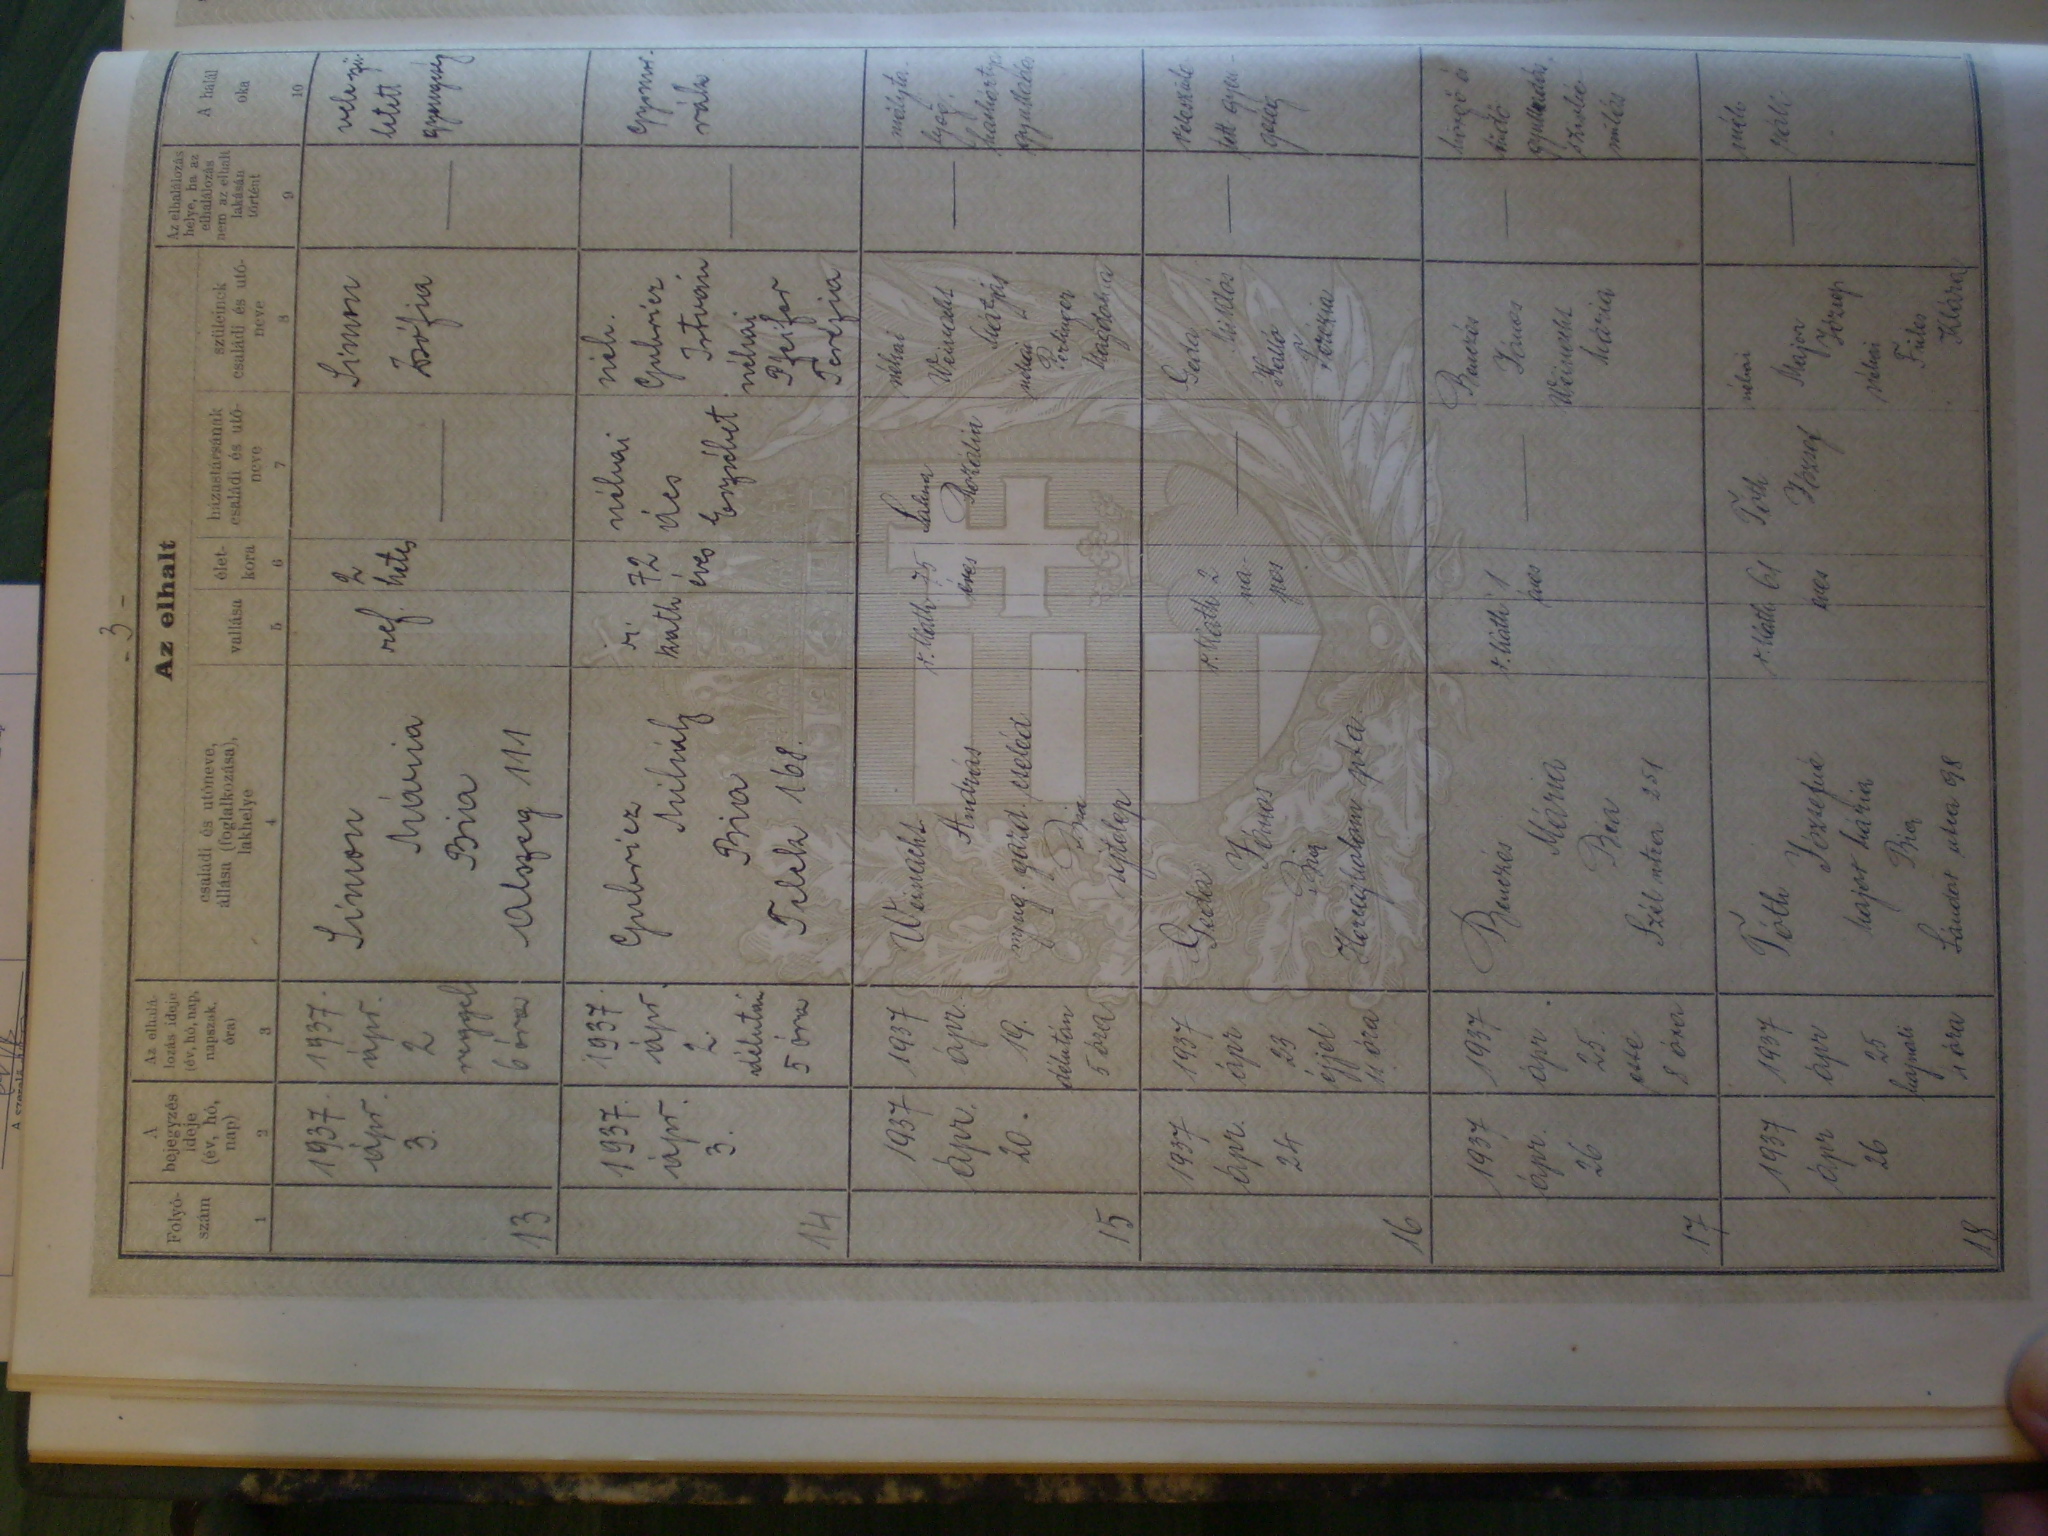 - 3 -
Az elhalt
Folyó-
szám
A
bejegyzés
ideje
(év, hó,
nap)
Az elhalá-
lozás ideje
(év, hó, nap,
napszak,
óra)
családi és utóneve,
állása (foglalkozása),
lakhelye
vallása
élet-
kora
házastársának
családi és utó-
neve
szüleinek
családi és utó-
neve
Az elhalálozás
helye, ha az
elhalálozás
nem az elhalt
lakásán
történt
A halál
oka
1
2
3
4
5
6
7
8
9
10
13
1937.
ápr.
3.
1937.
ápr.
2
reggel
6 óra
Simon
Mária
Bia
Alszeg 111
ref.
2
hetes
Simon
Zsófia
veleszü
letett
gyengeség
14
1937.
ápr.
3.
1937.
ápr.
2.
délután
5 óra
Gubricz
Mihály
Bia
Telek 168.
r.
kath
72
éves
néhai
Ács
Erzsébet
néh.
Gubricz
István
néhai
Pfeifer
Terézia
gyomor.
rák
15
1937
ápr.
20.
1937
ápr.
19.
délután
5 óra
Weinacht
András
nyug. gazd. cseléd
Bia
ujtelep
r. Kath
75
éves
Rozália
néhai
Weinacht
Mátyás
néhai
Magdolna
agyhártya
gyulladás
16
1937
ápr.
24
1937
ápr
23
éjjel
11 óra
János
Bia
Herceghalom pta
r. Kath
2
na-
pos
Miklós
Kalló
Terézia
veleszüle
tett gyen-
geség
17
1937
ápr.
26
1937
ápr.
25.
este
8 óra
Benczés
Mária
Bia
Szél utca 251
r. Kath
1
éves
Benczés
János
Weinacht
Mária
tüdő
gyulladás,
18
1937
ápr
26
1937
ápr
25
hajnali
1 óra
Tóth
Józsefné
Major Mária
Bia
Sándor utca 98
r. Kath
61
éves
Tóth
József
néhai
Major
József
néhai
Klára
méh
rák.